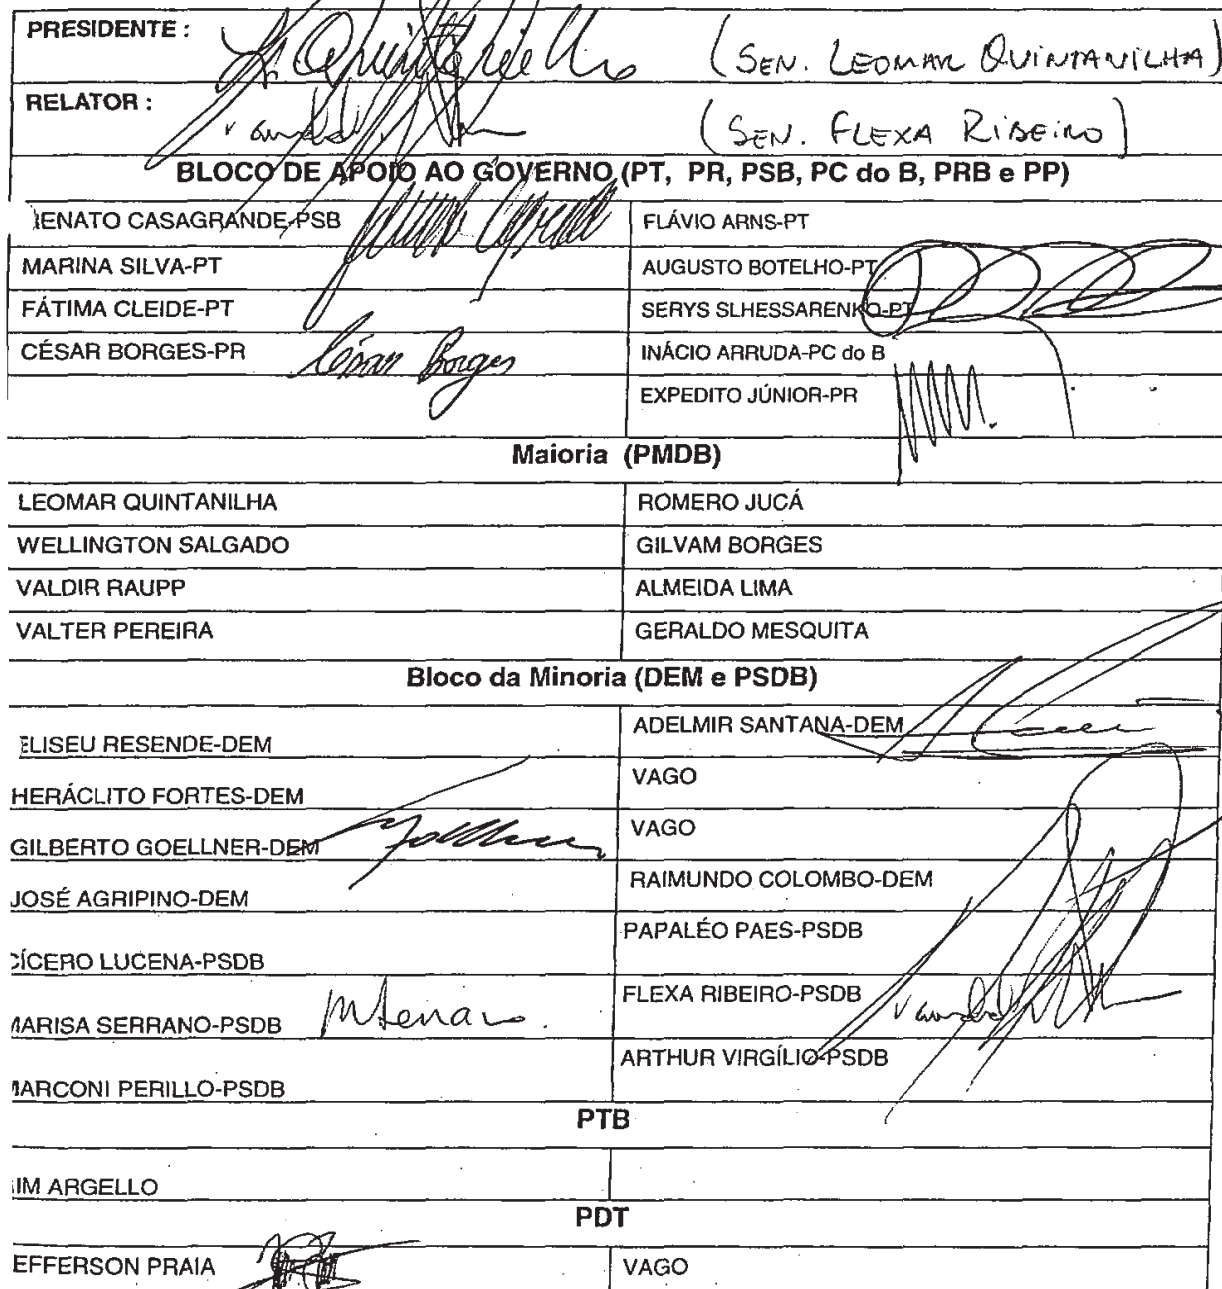 PRESIDENTE : (SEN. LEOMAR QUINTANILHA)
RELATOR : (SEN. FLEXA RIBEIRO)
BLOCO DE APOIO AO GOVERNO (PT, PR, PSB, PC do B, PRB e PP)
RENATO CASAGRANDE-PSB FLÁVIO ARNS-PT
MARINA SILVA-PT AUGUSTO BOTELHO-PT
FÁTIMA CLEIDE-PT SERYS SLHESSARENKO-PT
CÉSAR BORGES-PR César Borges INÁCIO ARRUDA-PC do B
EXPEDITO JÚNIOR-PR
Maioria (PMDB)
LEOMAR QUINTANILHA ROMERO JUCÁ
WELLINGTON SALGADO GILVAM BORGES
VALDIR RAUPP ALMEIDA LIMA
VALTER PEREIRA GERALDO MESQUITA
Bloco da Minoria (DEM e PSDB)
ELISEU RESENDE-DEM ADELMIR SANTANA-DEM
HERÁCLITO FORTES-DEM VAGO
GILBERTO GOELLNER-DEM VAGO
JOSÉ AGRIPINO-DEM RAIMUNDO COLOMBO-DEM
CÍCERO LUCENA-PSDB PAPALÉO PAES-PSDB
MARISA SERRANO-PSDB FLEXA RIBEIRO-PSDB
MARCONI PERILLO-PSDB ARTHUR VIRGÍLIO-PSDB
PTB
IM ARGELLO
PDT
EFFERSON PRAIA VAGO